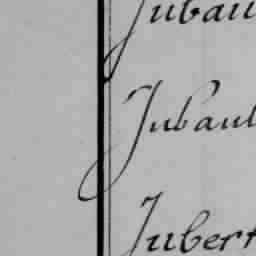 Jubau
Jubaul
Jubert